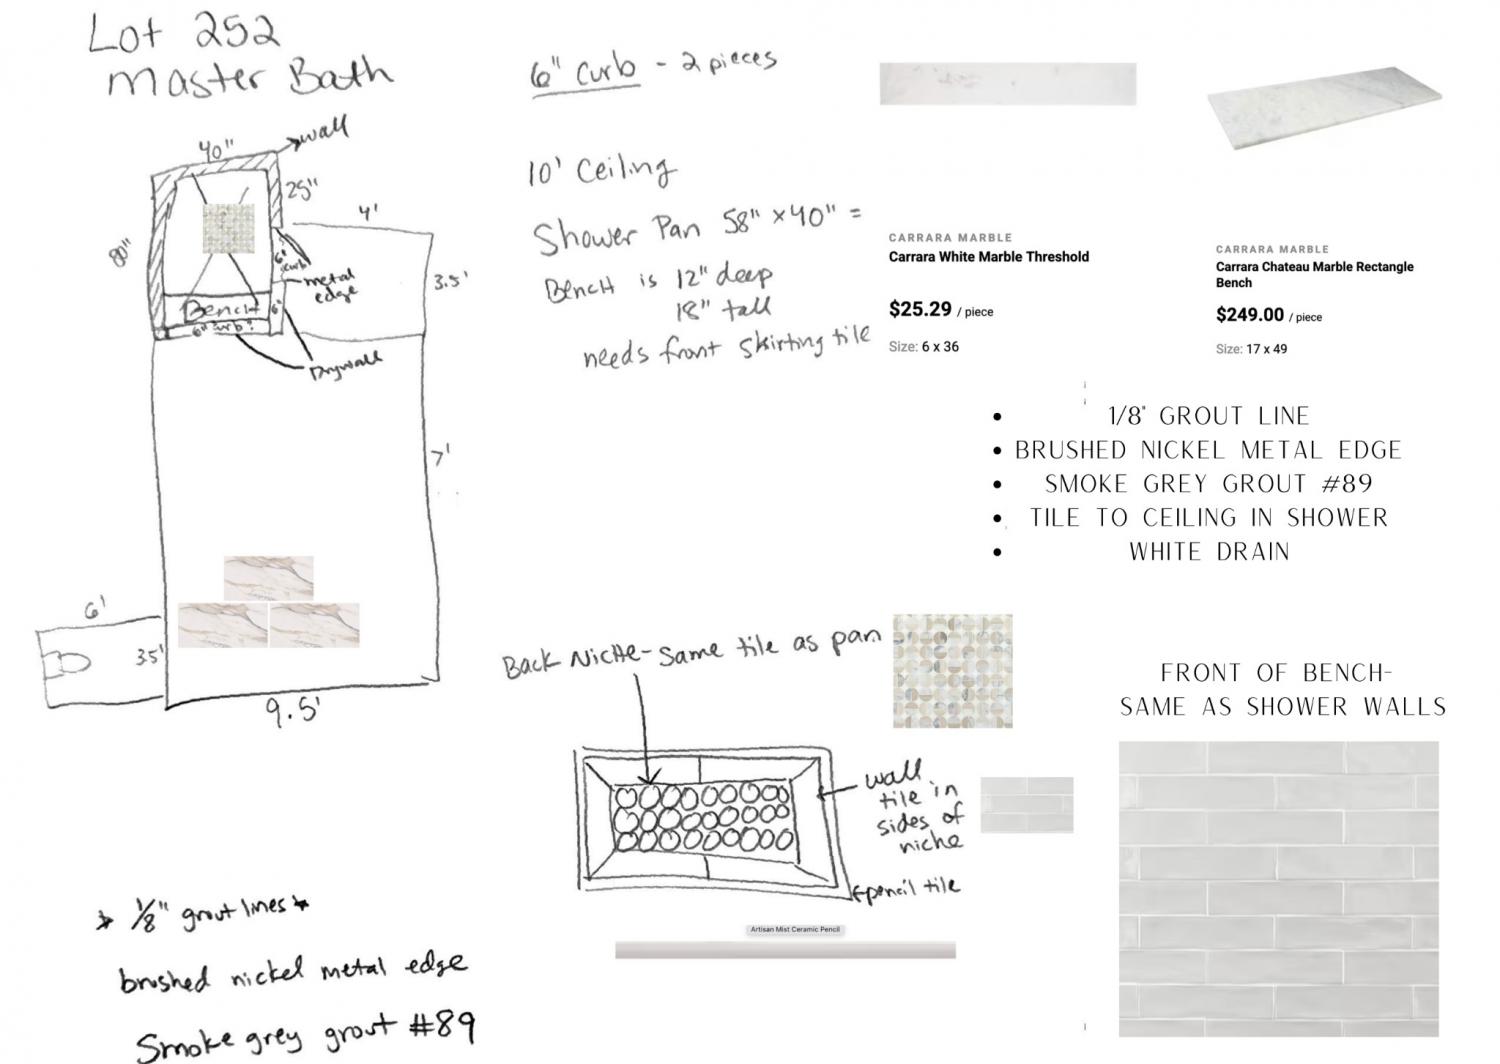 Lot 252
Master Bath
40"
wall
25"
4'
80"
6"
curb
metal
edge
3.5'
Bench
6"
6" curb?
Drywall
7'
6'
3.5'
9.5'
* 1/8" grout lines *
brushed nickel metal edge
Smoke grey grout #89
6" Curb - 2 pieces
10' Ceiling
Shower Pan 58" x 40" =
Bench is 12" deep
18" tall
needs front skirting tile
CARRARA MARBLE
Carrara White Marble Threshold
$25.29 / piece
Size: 6 x 36
CARRARA MARBLE
Carrara Chateau Marble Rectangle
Bench
$249.00 / piece
Size: 17 x 49
• 1/8" GROUT LINE
• BRUSHED NICKEL METAL EDGE
• SMOKE GREY GROUT #89
• TILE TO CEILING IN SHOWER
• WHITE DRAIN
Back Niche - Same tile as pan
wall
tile in
sides of
niche
pencil tile
Artisan Mist Ceramic Pencil
FRONT OF BENCH-
SAME AS SHOWER WALLS